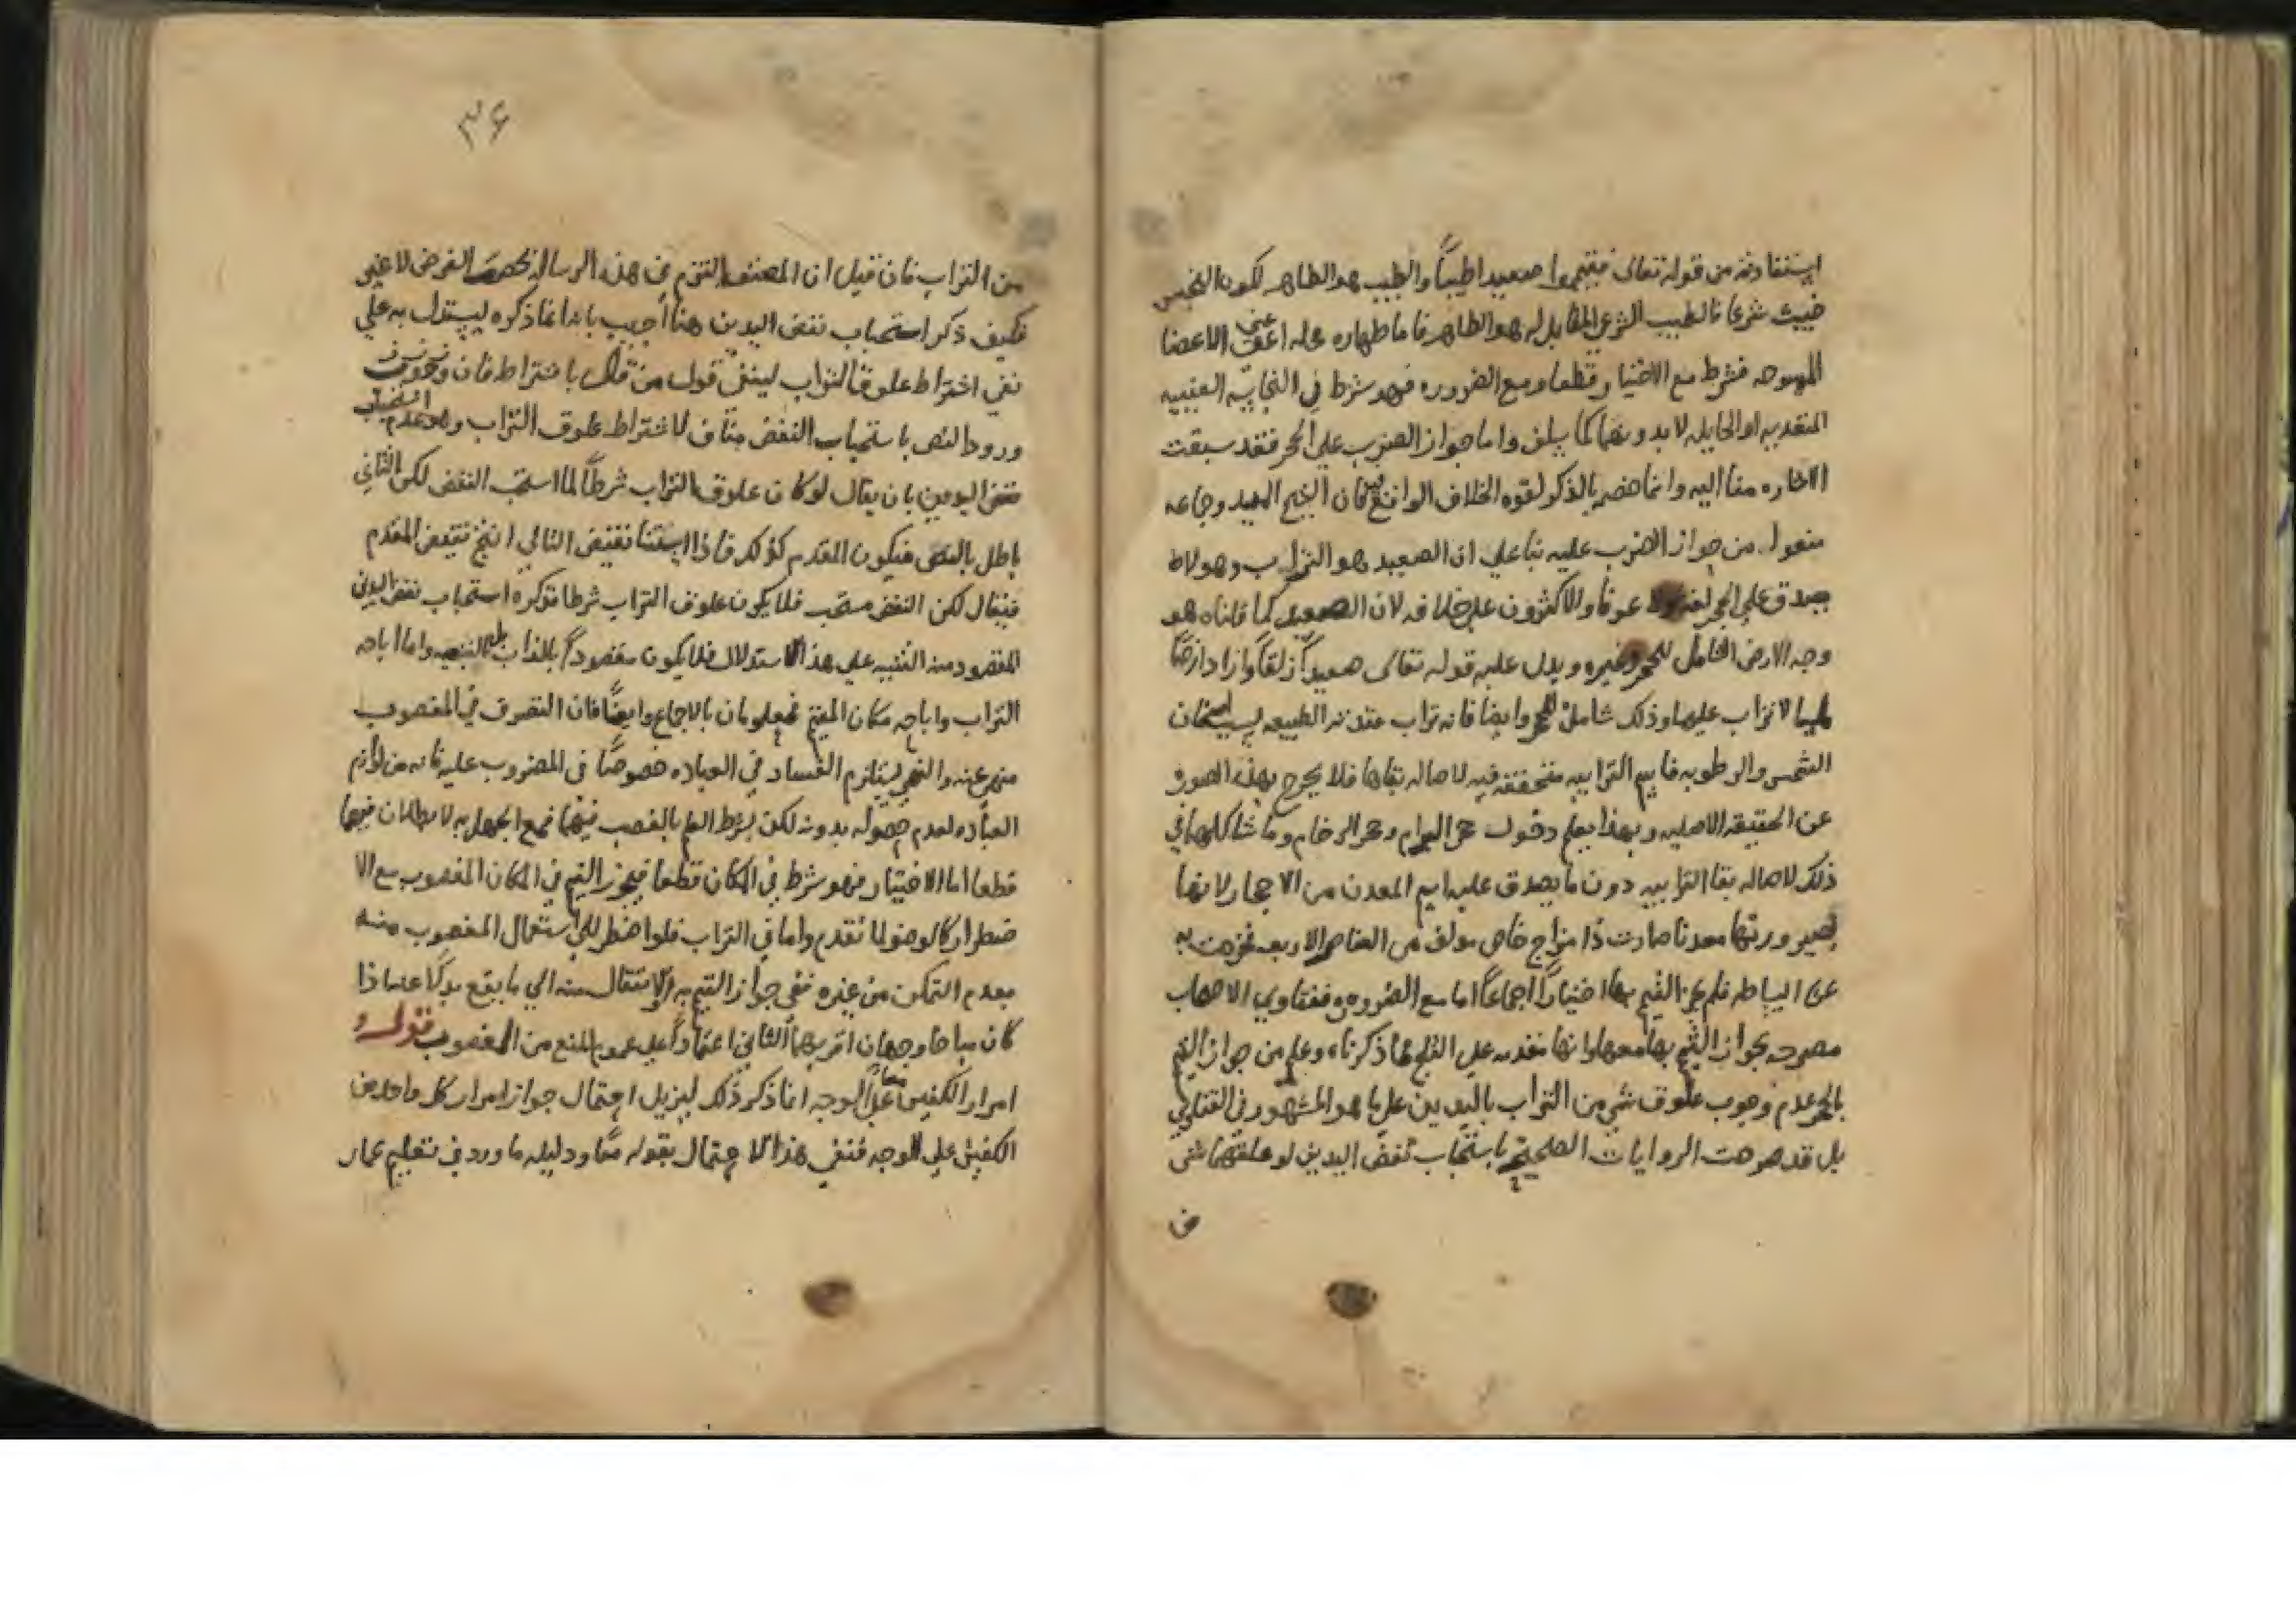 استفادته من قوله تعالى فتيمموا صعيدا طيباً والطيب هو الطاهر لكون النجس
خبيث شرعا فالطيب الشرعي المقابل له هو الطاهر فاما طهاره محله اعني الاعضا
الممسوحه فشرط مع الاختيار قطعا ومع الضروره فهو شرط في النجاسه العينيه
المتعديه او الحايله لا بدونهما كما سلف واما جواز الضرب على الحجر فقد سبقت
الاشاره منا اليه وانما خصه بالذكر لقوه الخلاف الواقع فيه فان الشيخ المفيد وجماعه
منعوا من جواز الضرب عليه بنا على ان الصعيد هو التراب وهو لا
يصدق على الحجر عرفا والاكثرون على خلافه لان الصعيد كما قلناه هو
وجه الارض الشامل للحجر وغيره ويدل عليه قوله تعالى صعيداً زلقاً واراد ارضاً
لا تراب عليها وذلك شامل للحجر وايضا فانه تراب عقدته الطبيعه بسبب اسخان
الشمس والرطوبه فاسم الترابيه متحققه فيه لاصاله بقاها فلا يخرج بهذه الصوره
عن الحقيقه الاصليه وبهذا يعلم دخول حجر البرام وحجر الرخام وما شاكلهما في
ذلك لاصاله بقا الترابيه دون ما يصدق عليه اسم المعدن من الاحجار لانها
لصيرورتها معدنا صارت ذا مزاج خاص مولف من العناصر الاربعه فخرجت به
عن البساطه فلم يجز التيمم بها اختياراً اجماعاً اما مع الضروره ففتاوي الاصحاب
مصرحه بجواز التيمم بها معها وانها متقدمه على الثلج لما ذكرناه وعلم من جواز التيمم
بالحجر عدم وجوب علوق شي من التراب باليدين على ما هو المشهور في الفتاوي
بل قد صرحت الروايات الصحيحه باستحباب نفض اليدين لو علقهما شي
من
٣٤
من التراب فان قيل ان المصنف التزم في هذه الرساله الفرض لا غير
فكيف ذكر استحباب نفض اليدين هنا اجيب بانه انما ذكره ليستدل به علي
نفي اشتراط علوق التراب لينفي قول من قال باشتراط
ورود النص باستحباب النفض مناف لاشتراط علوق التراب وهو عدم استحباب
نفض اليدين بان يقال لو كان علوق التراب شرطاً لما استحب النفض لكن الثاني
باطل بالنص فيكون المقدم كذلك فاذا استثنا نقيض التالي انتج نقيض المقدم
فيقال لكن النفض مستحب فلا يكون علوق التراب شرطا فذكره استحباب نفض اليدين
المقصود منه التنبيه علي هذا الاستدلال فلا يكون مقصوداً بالذات بل بالتبعيه واما اباحه
التراب واباحه مكان المتيمم فمعلومان بالاجماع وايضاً فان التصرف في المغصوب
منهي عنه والنهي يستلزم الفساد في العباده خصوصاً في المضروب عليه فانه من لوازم
العباده لعدم حصوله بدونه لكن بشرط العلم بالغصب فيهما فمع الجهل به لا بطلان فيهما
قطعا اما الاختيار فهو شرط في المكان قطعا فيجوز التيمم في المكان المغصوب مع الا
ضطرار كالوضو لما تقدم واما في التراب فلو اضطر الى استعمال المغصوب منه
بعدم التمكن من غيره ففي جواز التيمم به او الانتقال منه الي ما يقع بدلا عنه اذا
كان مباحا وجهان اقربهما الثاني اعتماداً علي عموم المنع من المغصوب قوله و
امرار الكفين معا علي الوجه انما ذكر ذلك ليزيل احتمال جواز امرار كل واحد من
الكفين علي الوجه فنفي هذا الاحتمال بقوله معاً ودليله ما ورد في تعليم عمار